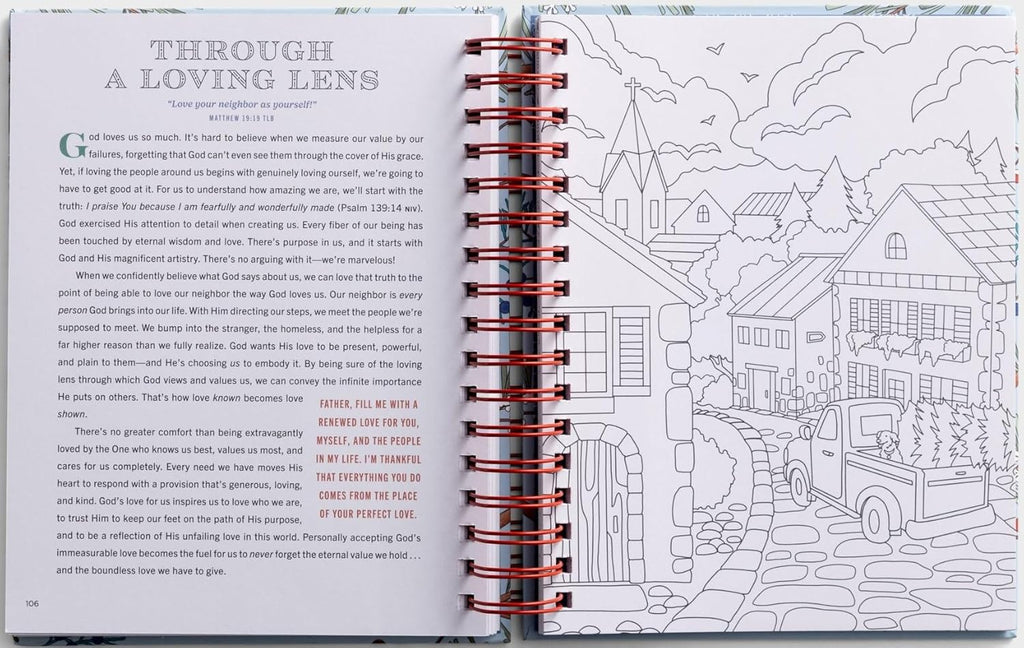 THROUGH
A LOVING LENS
“Love your neighbor as yourself!”
MATTHEW 19:19 TLB
God loves us so much. It's hard to believe when we measure our value by our
failures, forgetting that God can't even see them through the cover of His grace.
Yet, if loving the people around us begins with genuinely loving ourself, we're going to
have to get good at it. For us to understand how amazing we are, we'll start with the
truth: I praise You because I am fearfully and wonderfully made (Psalm 139:14 NIV).
God exercised His attention to detail when creating us. Every fiber of our being has
been touched by eternal wisdom and love. There's purpose in us, and it starts with
God and His magnificent artistry. There's no arguing with it—we're marvelous!
When we confidently believe what God says about us, we can love that truth to the
point of being able to love our neighbor the way God loves us. Our neighbor is every
person God brings into our life. With Him directing our steps, we meet the people we're
supposed to meet. We bump into the stranger, the homeless, and the helpless for a
far higher reason than we fully realize. God wants His love to be present, powerful,
and plain to them—and He's choosing us to embody it. By being sure of the loving
lens through which God views and values us, we can convey the infinite importance
He puts on others. That's how love known becomes love
shown.
There's no greater comfort than being extravagantly
loved by the One who knows us best, values us most, and
cares for us completely. Every need we have moves His
heart to respond with a provision that's generous, loving,
and kind. God's love for us inspires us to love who we are,
to trust Him to keep our feet on the path of His purpose,
and to be a reflection of His unfailing love in this world. Personally accepting God's
immeasurable love becomes the fuel for us to never forget the eternal value we hold . . .
and the boundless love we have to give.
FATHER, FILL ME WITH A
RENEWED LOVE FOR YOU,
MYSELF, AND THE PEOPLE
IN MY LIFE. I'M THANKFUL
THAT EVERYTHING YOU DO
COMES FROM THE PLACE
OF YOUR PERFECT LOVE.
106